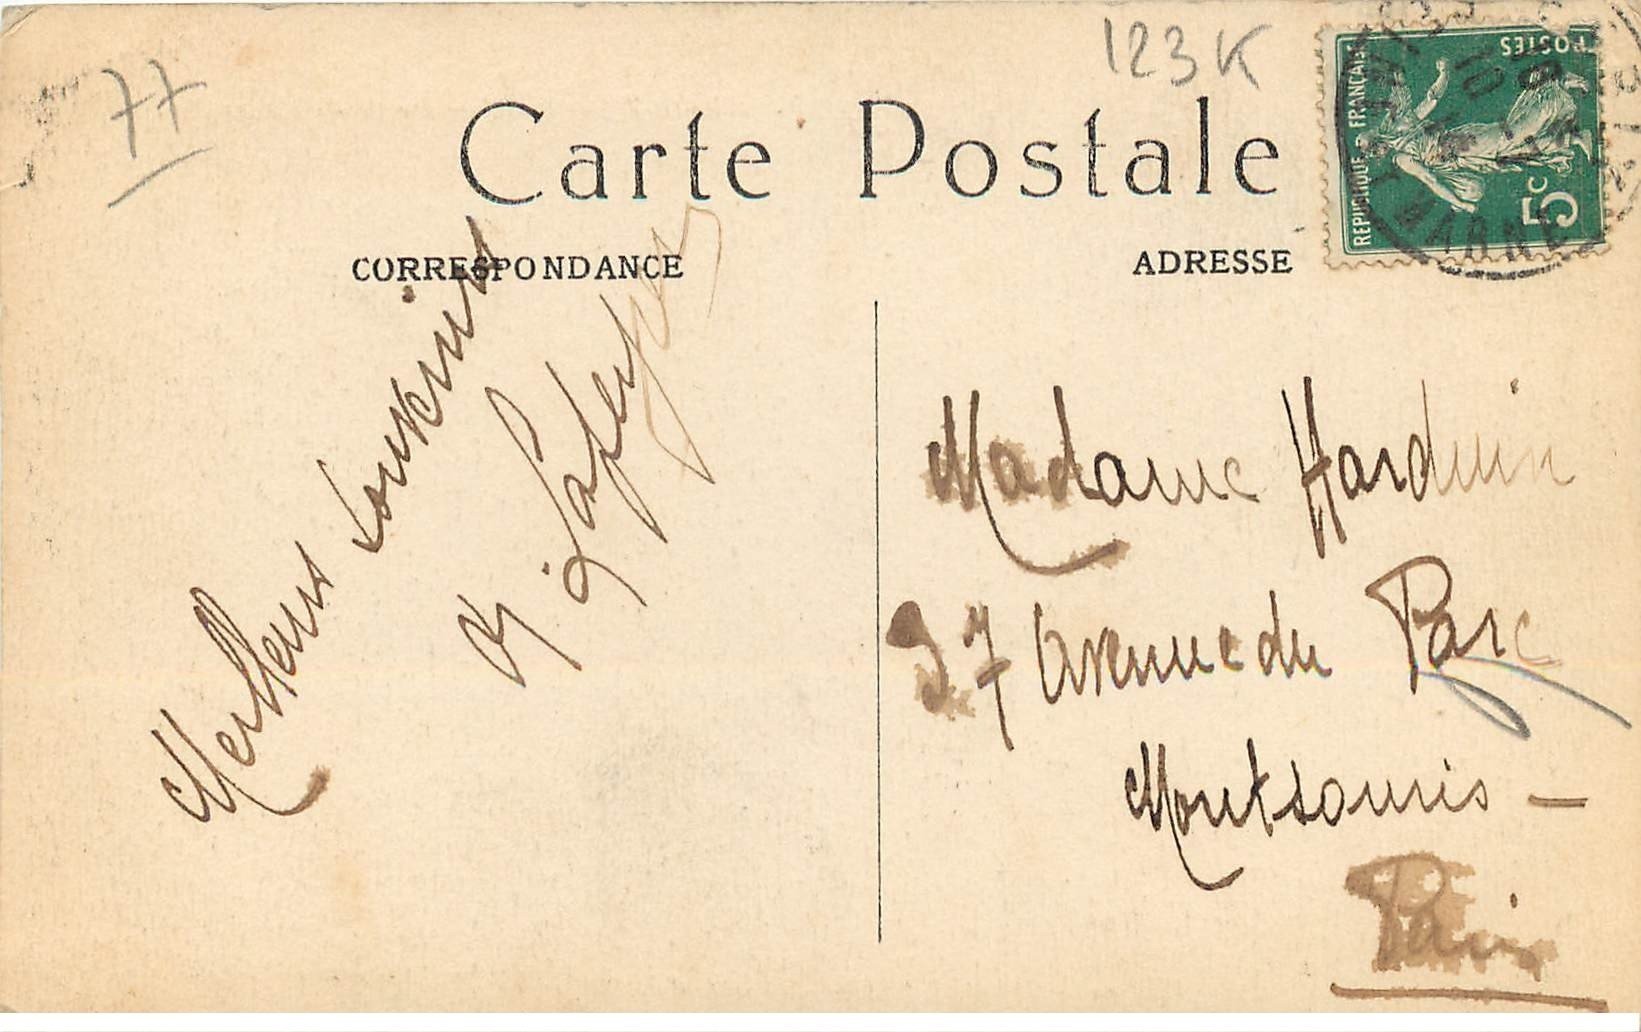 77
123K
Carte Postale
CORRESPONDANCE
ADRESSE
REPUBLIQUE FRANCAISE
POSTES
5c
MARNE
Meilleurs Souvenirs
Madame Harduin
37 Avenue du Parc
Montsouris —
Paris